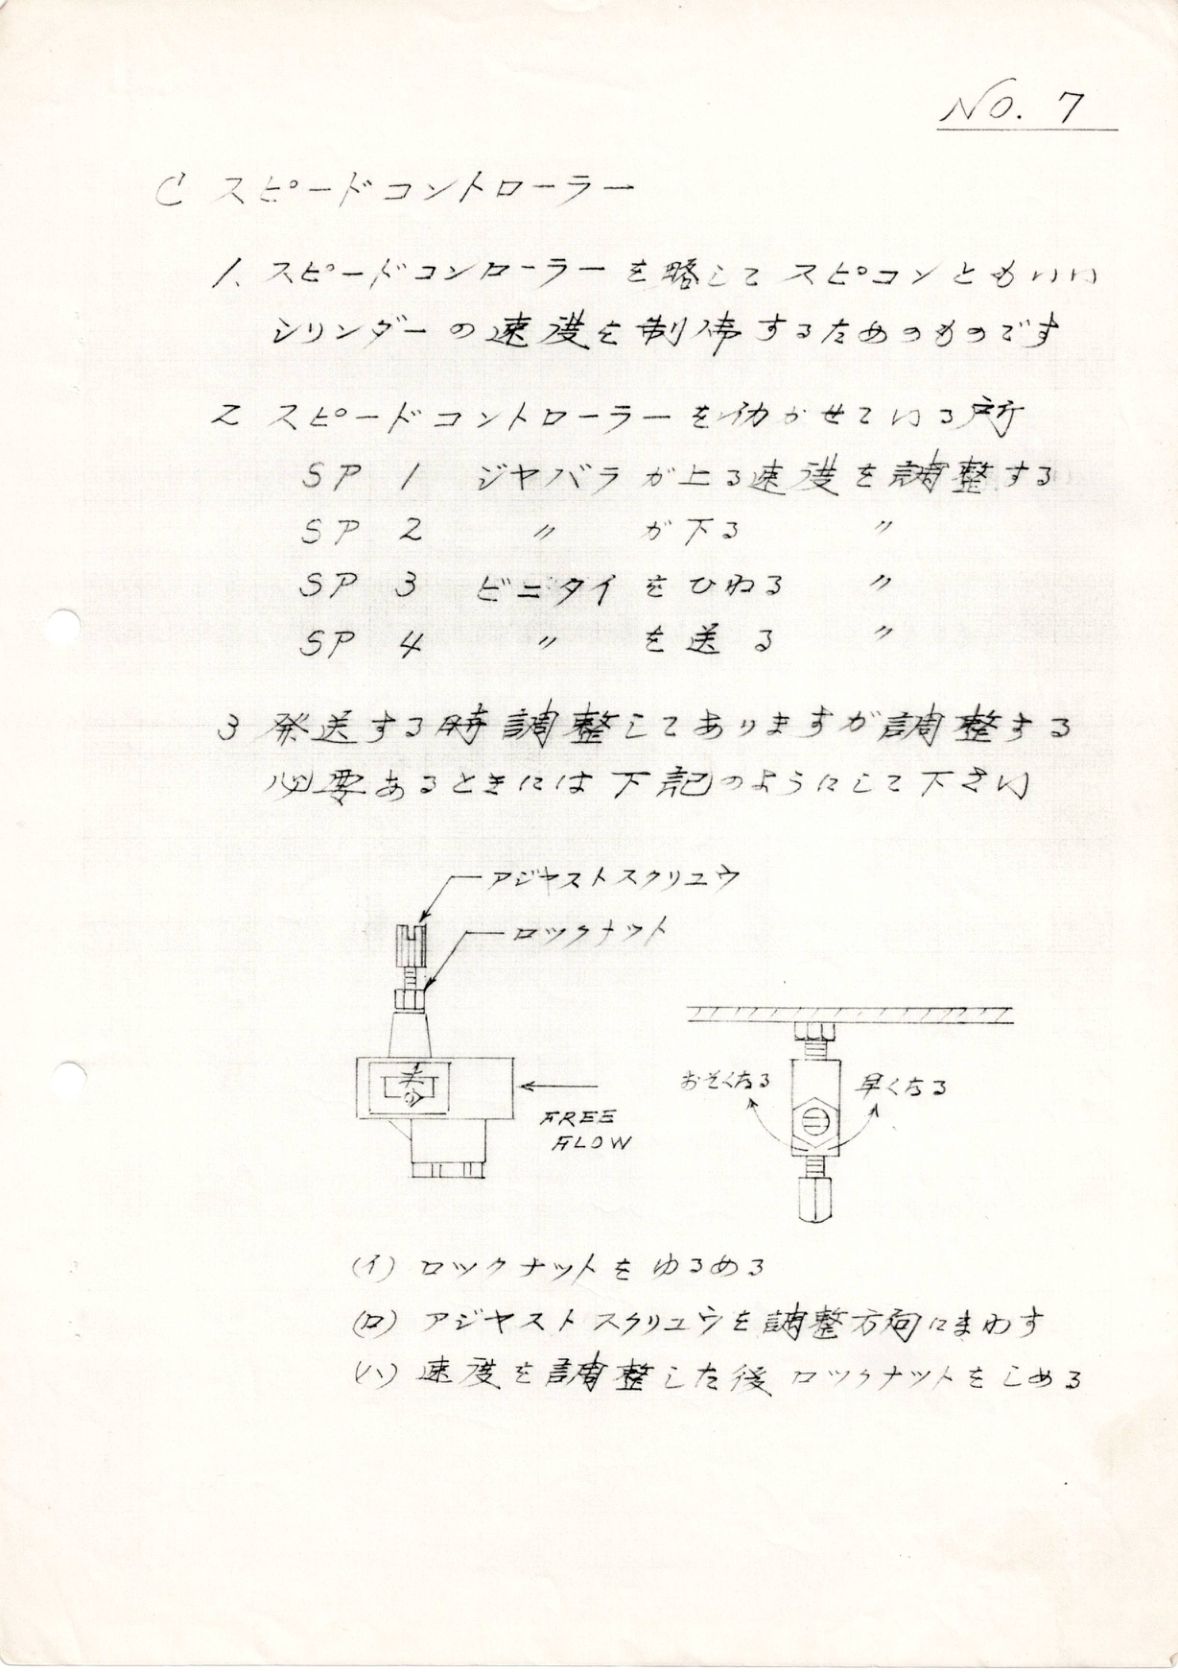 NO. 7
C スピードコントローラー
1. スピードコンローラーを略して スピコンともいい
シリンダーの速度を制御するためのものです
2 スピードコントローラーを働かせている所
SP 1 ジヤバラ が上る速度を調整する
SP 2 〃 が下る 〃
SP 3 ビニタイ をひねる 〃
SP 4 〃 を送る 〃
3 発送する時調整してありますが調整する
必要あるときには下記のようにして下さい
アジヤストスクリユウ
ロックナット
おそくなる
早くなる
FREE
FLOW
(イ) ロックナットをゆるめる
(ロ) アジヤストスクリユウを調整方向にまわす
(ハ) 速度を調整した後 ロックナットをしめる